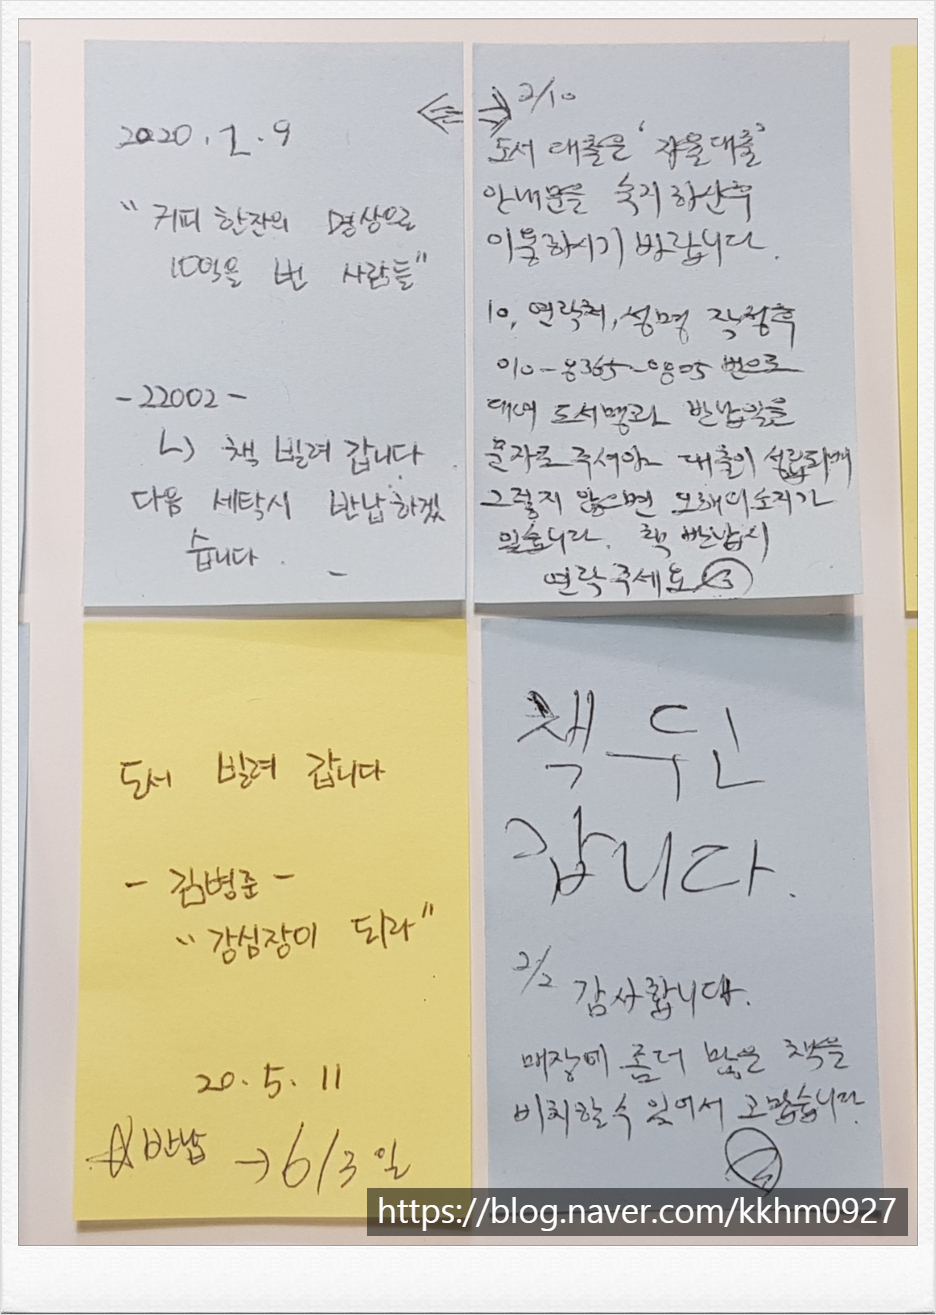 2020. 1. 9
"커피 한잔의 명상으로
10억을 번 사람들"
-22002-
ㄴ) 책 빌려 갑니다
다음 세탁시 반납하겠
습니다.
2/10
도서 대출은 '자율대출'
안내문을 숙지하신후
이용하시기 바랍니다.
연락처, 성명 작성후
번으로
대여 도서명과 반납일을
문자로 주셔야 대출이 성립되며
그렇지 않으면 오해의 소지가
있습니다. 책 반납시
연락주세요
도서 빌려 갑니다
- 김병준 -
"강심장이 되라"
20. 5. 11
반납 → 6/3일
책 두고
갑니다.
2/2 감사합니다.
매장에 좀더 많은 책을
비치할수 있어서 고맙습니다
https://blog.naver.com/kkhm0927